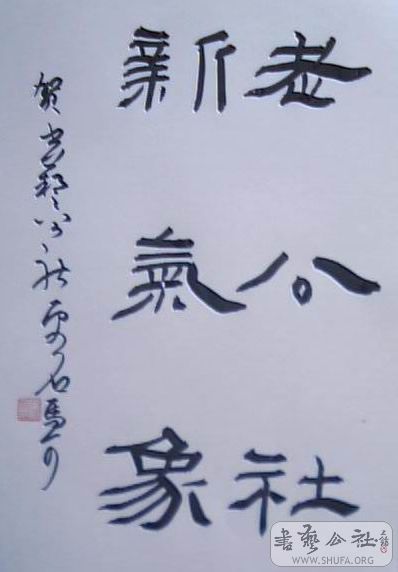 老公社
新氣象
贺书藝公社更名
書藝公社
WWW.SHUFA.ORG